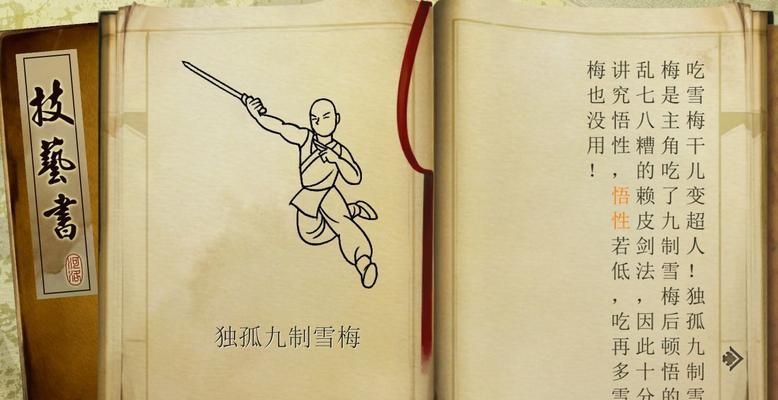 技藝書
独孤九制雪梅
吃雪梅干儿变超人！独孤九制雪
梅是主角吃了九制雪梅后顿悟的
乱七八糟的赖皮剑法，因此十分
讲究悟性，悟性若低，吃再多雪
梅也没用！